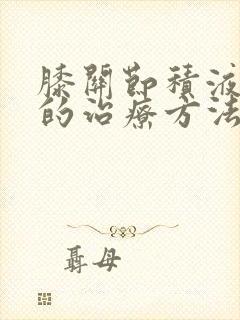 膝關節積液
的治療方法
聶母